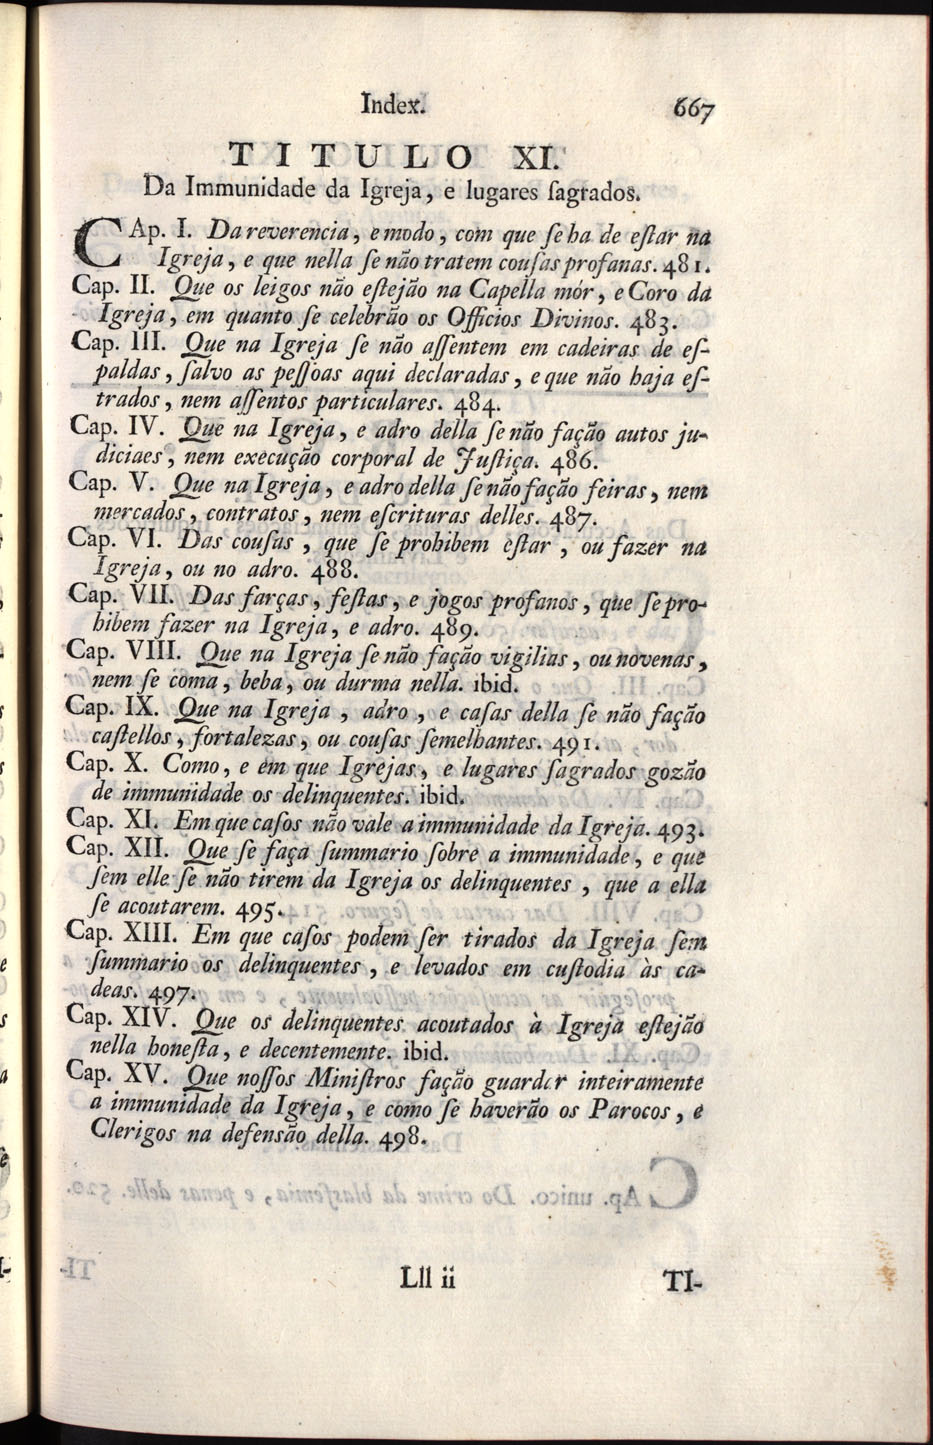 Index. 667
TITULO XI.
Da Immunidade da Igreja, e lugares ſagrados.
CAp. I. Da reverencia, e modo, com que ſe ha de eſtar na
Igreja, e que nella ſe não tratem couſas profanas. 481.
Cap. II. Que os leigos não eſtejão na Capella mór, e Coro da
Igreja, em quanto ſe celebrão os Officios Divinos. 483.
Cap. III. Que na Igreja ſe não aſſentem em cadeiras de eſ-
paldas, ſalvo as peſſoas aqui declaradas, e que não haja eſ-
trados, nem aſſentos particulares. 484.
Cap. IV. Que na Igreja, e adro della ſe não fação autos ju-
diciaes, nem execução corporal de Juſtiça. 486.
Cap. V. Que na Igreja, e adro della ſe não fação feiras, nem
mercados, contratos, nem eſcrituras delles. 487.
Cap. VI. Das couſas, que ſe prohibem eſtar, ou fazer na
Igreja, ou no adro. 488.
Cap. VII. Das farças, feſtas, e jogos profanos, que ſe pro-
hibem fazer na Igreja, e adro. 489.
Cap. VIII. Que na Igreja ſe não fação vigilias, ou novenas,
nem ſe coma, beba, ou durma nella. ibid.
Cap. IX. Que na Igreja, adro, e caſas della ſe não fação
caſtellos, fortalezas, ou couſas ſemelhantes. 491.
Cap. X. Como, e em que Igrejas, e lugares ſagrados gozão
de immunidade os delinquentes. ibid.
Cap. XI. Em que caſos não vale a immunidade da Igreja. 493.
Cap. XII. Que ſe faça ſummario ſobre a immunidade, e que
ſem elle ſe não tirem da Igreja os delinquentes, que a ella
ſe acoutarem. 495.
Cap. XIII. Em que caſos podem ſer tirados da Igreja ſem
ſummario os delinquentes, e levados em cuſtodia às ca-
deas. 497.
Cap. XIV. Que os delinquentes acoutados à Igreja eſtejão
nella honeſta, e decentemente. ibid.
Cap. XV. Que noſſos Miniſtros fação guardar inteiramente
a immunidade da Igreja, e como ſe haverão os Parocos, e
Clerigos na defensão della. 498.
Lll ii TI-